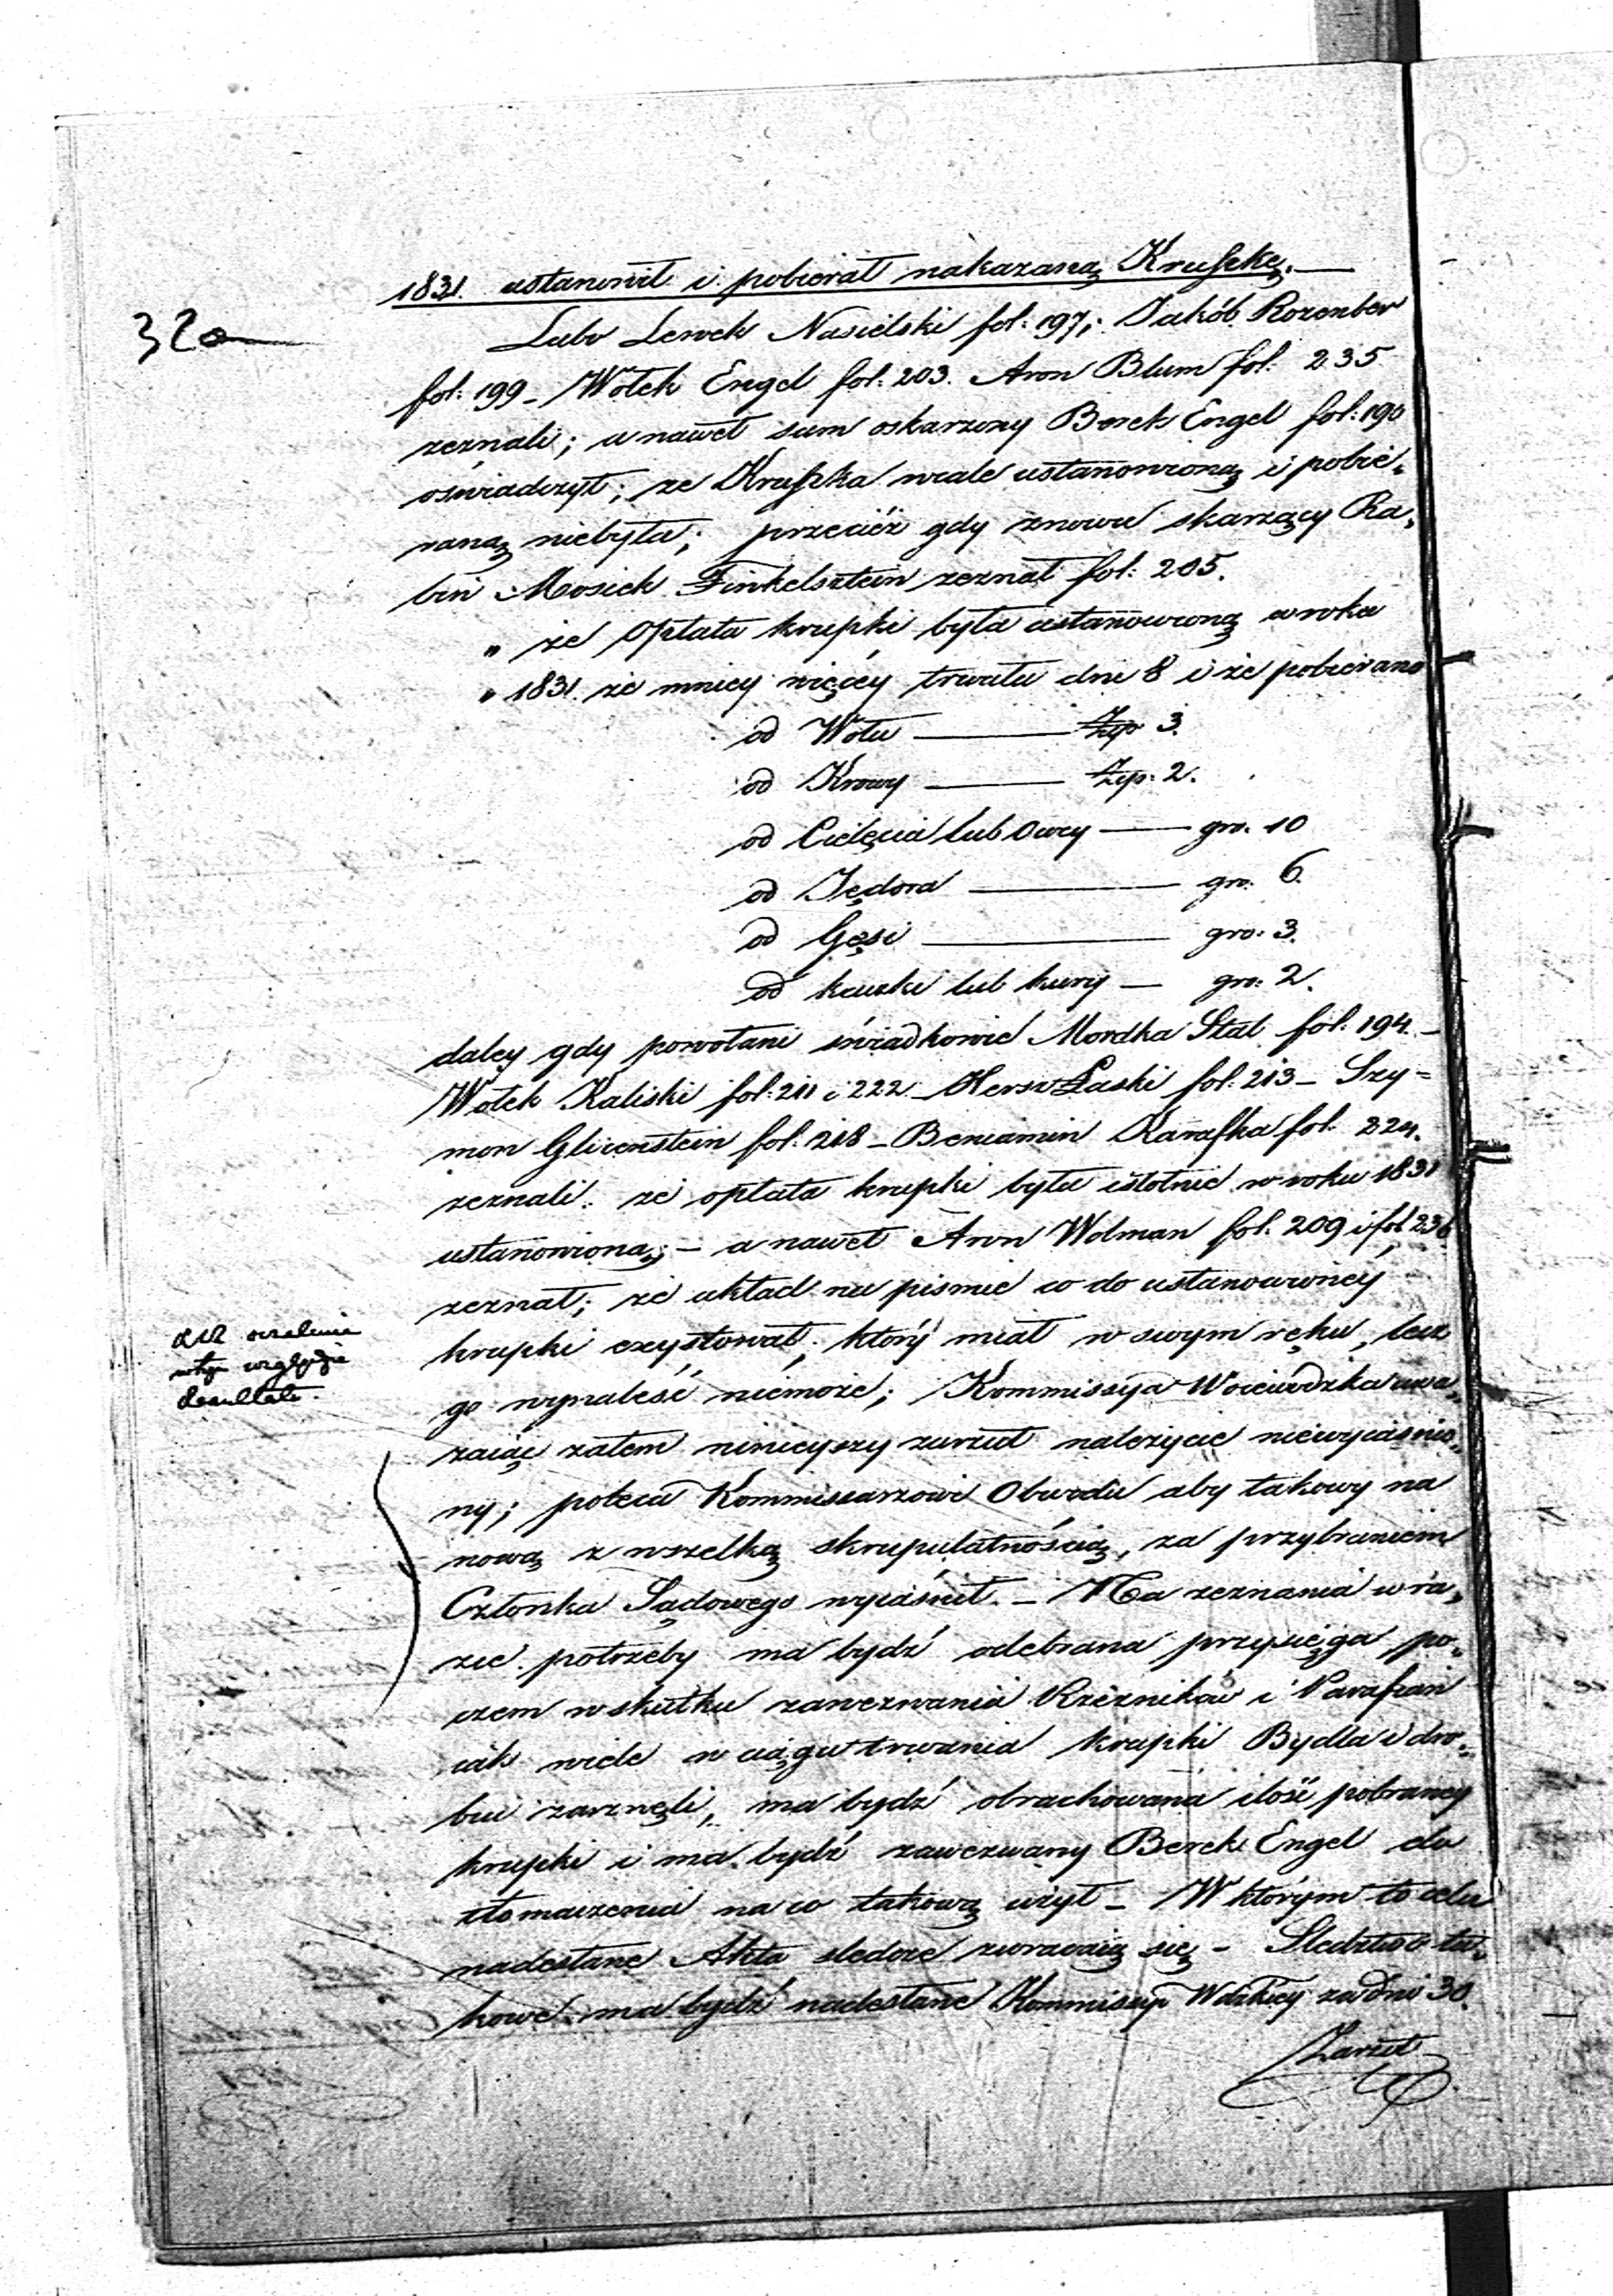 1831. ustanowił i pobierał nakazaną Krupkę.
320
Lubo Lewek Nasielski fol: 197; Jakób Rozenber
fol: 199 – Wolek Engel fol: 203. Aron Blum fol: 235
zeznali; a nawet sam oskarzony Berek Engel fol: 190
oświadczył; ze Krupka wcale ustanowioną i pobie„
raną niebyła; przecież gdy znowu skarzący Ra„
bin Mosiek Finkelsztein zeznał fol: 205.
„ że opłata krupki była ustanowioną w roku
„ 1831. że mniey więcey trwała dni 8 i że pobierano
od Wołu — Złp 3.
od Krowy — Złp: 2.
od Cielęcia lub Owcy — gro. 10
od Jędora — gro: 6.
od Gęsi — gro: 3.
od kaczki lub kury — gro: 2.
daley gdy powołani świadkowie Mordka Stal fol: 194. –
Wolek Kaliski fol: 211 i 222 – Hersz Laski fol: 213 – Szy=
mon Glicenstein fol: 218 – Beniamin Karafka fol: 224.
zeznali: że opłata krupki była istotnie w roku 1831
ustanowioną; – a nawet Aron Wolman fol. 209 i fol 236
zeznał; że układ na pismie co do ustanowioney
krupki exystował, który miał w swym ręku, lecz
go wynaleść niemoże; Kommissya Woiewódzka uwa„
zaiąc zatem ninieyszy zarzut należycie niewyiaśnio„
względzie
Rezultatu.
ny; poleca Kommissarzowi Obwodu aby takowy na
nową z wszelką skrupulatnością, za przybraniem
Członka Sądowego wyiaśnił. – Na zeznania w ra„
zie potrzeby ma bydź odebrana przysięga po„
czem w skutku zawezwania Rzézników i Parafian
iak wiele w ciągu trwania krupki Bydła i dro„
biu zarznęli, ma bydź obrachowana ilość pobraney
krupki i ma bydź zawezwany Berek Engel do
tłomaczenia na co takową użył – W którym to celu
nadesłane Akta śledcze zwracaią się – Śledztwo ta„
kowe ma bydź nadesłane Kommissyi Wdzkiey za dni 30.
Zarzut